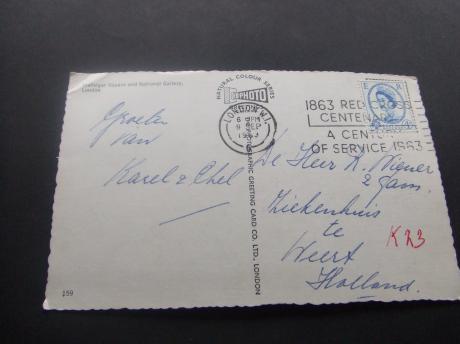 Trafalgar Square and National Gallery,
London
Groeten
van
Karel & Chel
159
NATURAL COLOUR SERIES
PHOTO
GRAPHIC GREETING CARD CO. LTD., LONDON
LONDON W.1.
6 PM
9 SEP
1963
1863 RED CROSS
CENTENARY
A CENTURY
OF SERVICE 1963
E R
De Heer K. Wiener
& fam.
Ziekenhuis
te
Weert
Holland.
K23